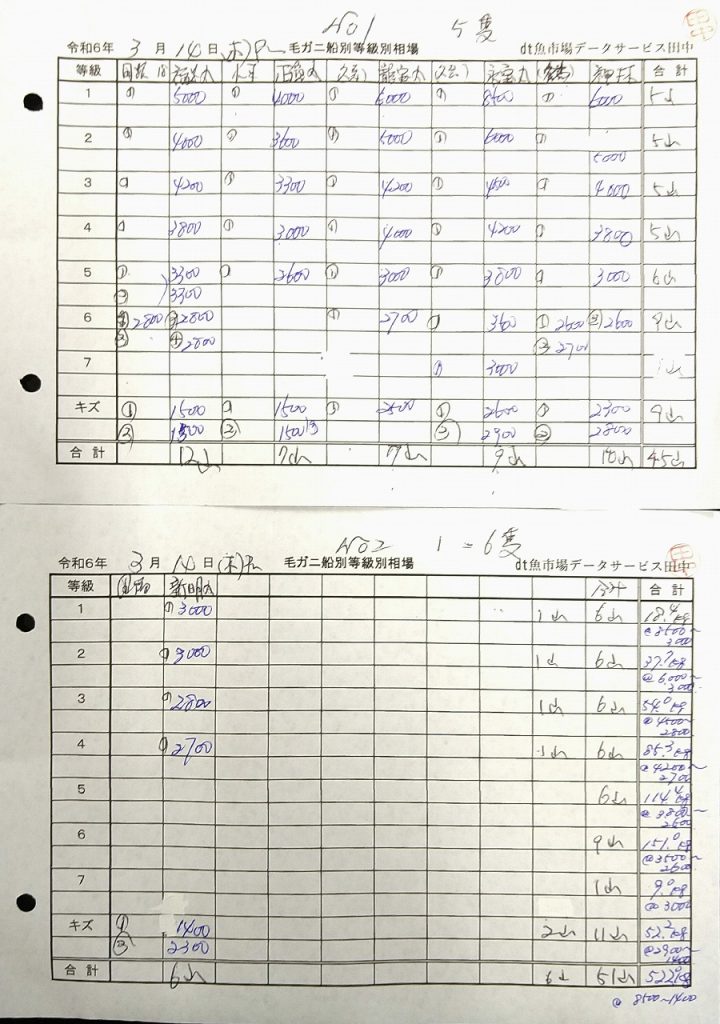 No1 5隻
令和6年 3月 14日(木) 毛ガニ船別等級別相場 dt魚市場データサービス田中
等級 合計
1 ① 5000 ① 4000 ① 6000 ① 8500 ① 6000 5山
2 ① 4000 ① 3600 ① 5000 ① 6000 ① 5山
5000
3 ① 4200 ① 3300 ① 4200 ① 4500 ① 4000 5山
4 ① 3800 ① 3000 ① 4000 ① 4200 ① 3800 5山
5 ① 3300 ① 2600 ① 3000 ① 3800 ① 3000 6山
② 3300
6 2800 ③2800 ① 2700 ① ① 2600 ②2600 9山
② ④2800 ③ 2700
7 ① 3000 1山
キズ ① 1500 ① 1500 ① 2500 ① 2600 ① 2300 9山
② ② 1500 ② 2900 ② 2800
合計 12山 7山 7山 9山 10山 45山
No2 1=6隻
令和6年 3月 14日(木) 毛ガニ船別等級別相場 dt魚市場データサービス田中
等級 新明丸 合計 合計
1 ①3000 1山 6山 18.4kg
@8500〜
3000
2 ①3000 1山 6山 37.7kg
@6000〜
3000
3 ①2800 1山 6山 54.0kg
@4500〜
2800
4 ①2700 1山 6山 85.3kg
@4200〜
2700
5 6山 114.4kg
@3800〜
2600
6 9山 151.0kg
@3500〜
2600
7 1山 9.0kg
@3000
キズ ① 1400 2山 11山 52.2kg
② 2300 @2900〜
1400
合計 6山 6山 51山 522.0kg
@8500〜1400